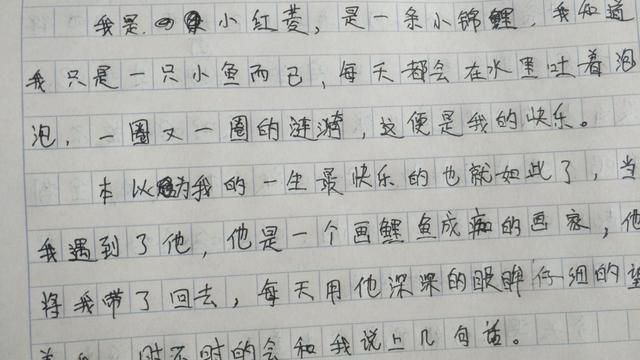 我是小红菱，是一条小锦鲤，我知道
我只是一只小鱼而已，每天都会在水里吐着泡
泡，一圈又一圈的涟漪，这便是我的快乐。
本以为我的一生最快乐的也就如此了，当
我遇到了他，他是一个画鲤鱼成痴的画家，他
将我带了回去，每天用他深深的眼眸仔细的望
时不时的会和我说上几句话。